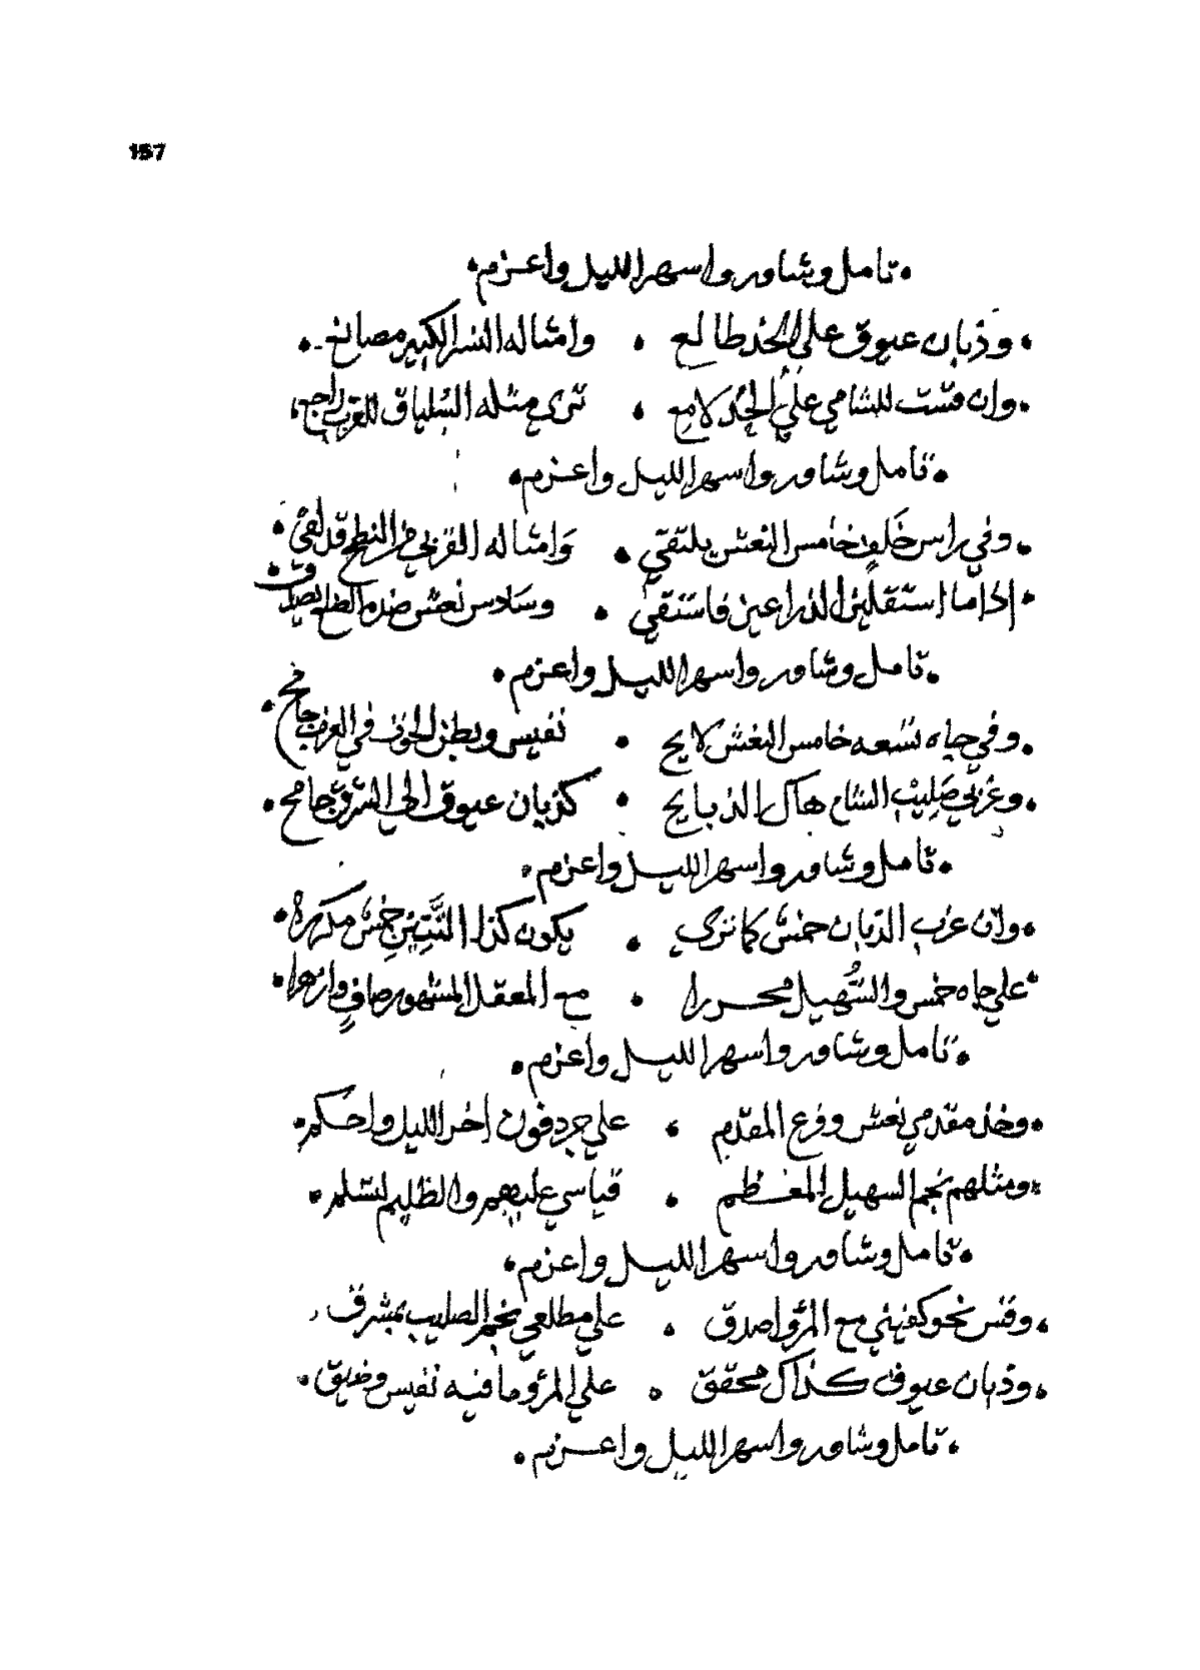 157
تامل وشاور واسهر الليل واعزم
وذبان عيوق على الخد طالع • وامثاله النسر الكبير مصانع
وان قست للشامي على الجد لامع • ترى مثله السلياق للغرب راجع
تامل وشاور واسهر الليل واعزم
وفي راس خلف خامس النعش يلتقي • وامثاله القرني في النطح قد لقي
اذا ما استقلين الذراعين فاستقي • وسادس نعش ضدم
تامل وشاور واسهر الليل واعزم
وفي جاه تسعه خامس النعش لايح • نفيس وبطن الحوت في الغرب جانح
وغربي صليب الشام هاك الذبايح • كذبان عيوق الى الشرق جامح
تامل وشاور واسهر الليل واعزم
وان غرب الذبان خمس كما ترى • يكون كذا التنين خمس مكررا
علي جاه خمس والسهيل محررا • مع المعقل المشهور صاف
تامل وشاور واسهر الليل واعزم
وخذ مقدمي نعش وفرع المقدم • علي جردفون اخر الليل واحكم
ومثلهم نجم السهيل المعظم • قياسي عليهم والظليم لتسلم
تامل وشاور واسهر الليل واعزم
وقس نحو كفيني مع المرؤ اصدق • علي مطلعي نجم الصليب بمشرق
وذبان عيوق كذاك محقق • علي المرؤ ما فيه نفيس وضيق
تامل وشاور واسهر الليل واعزم